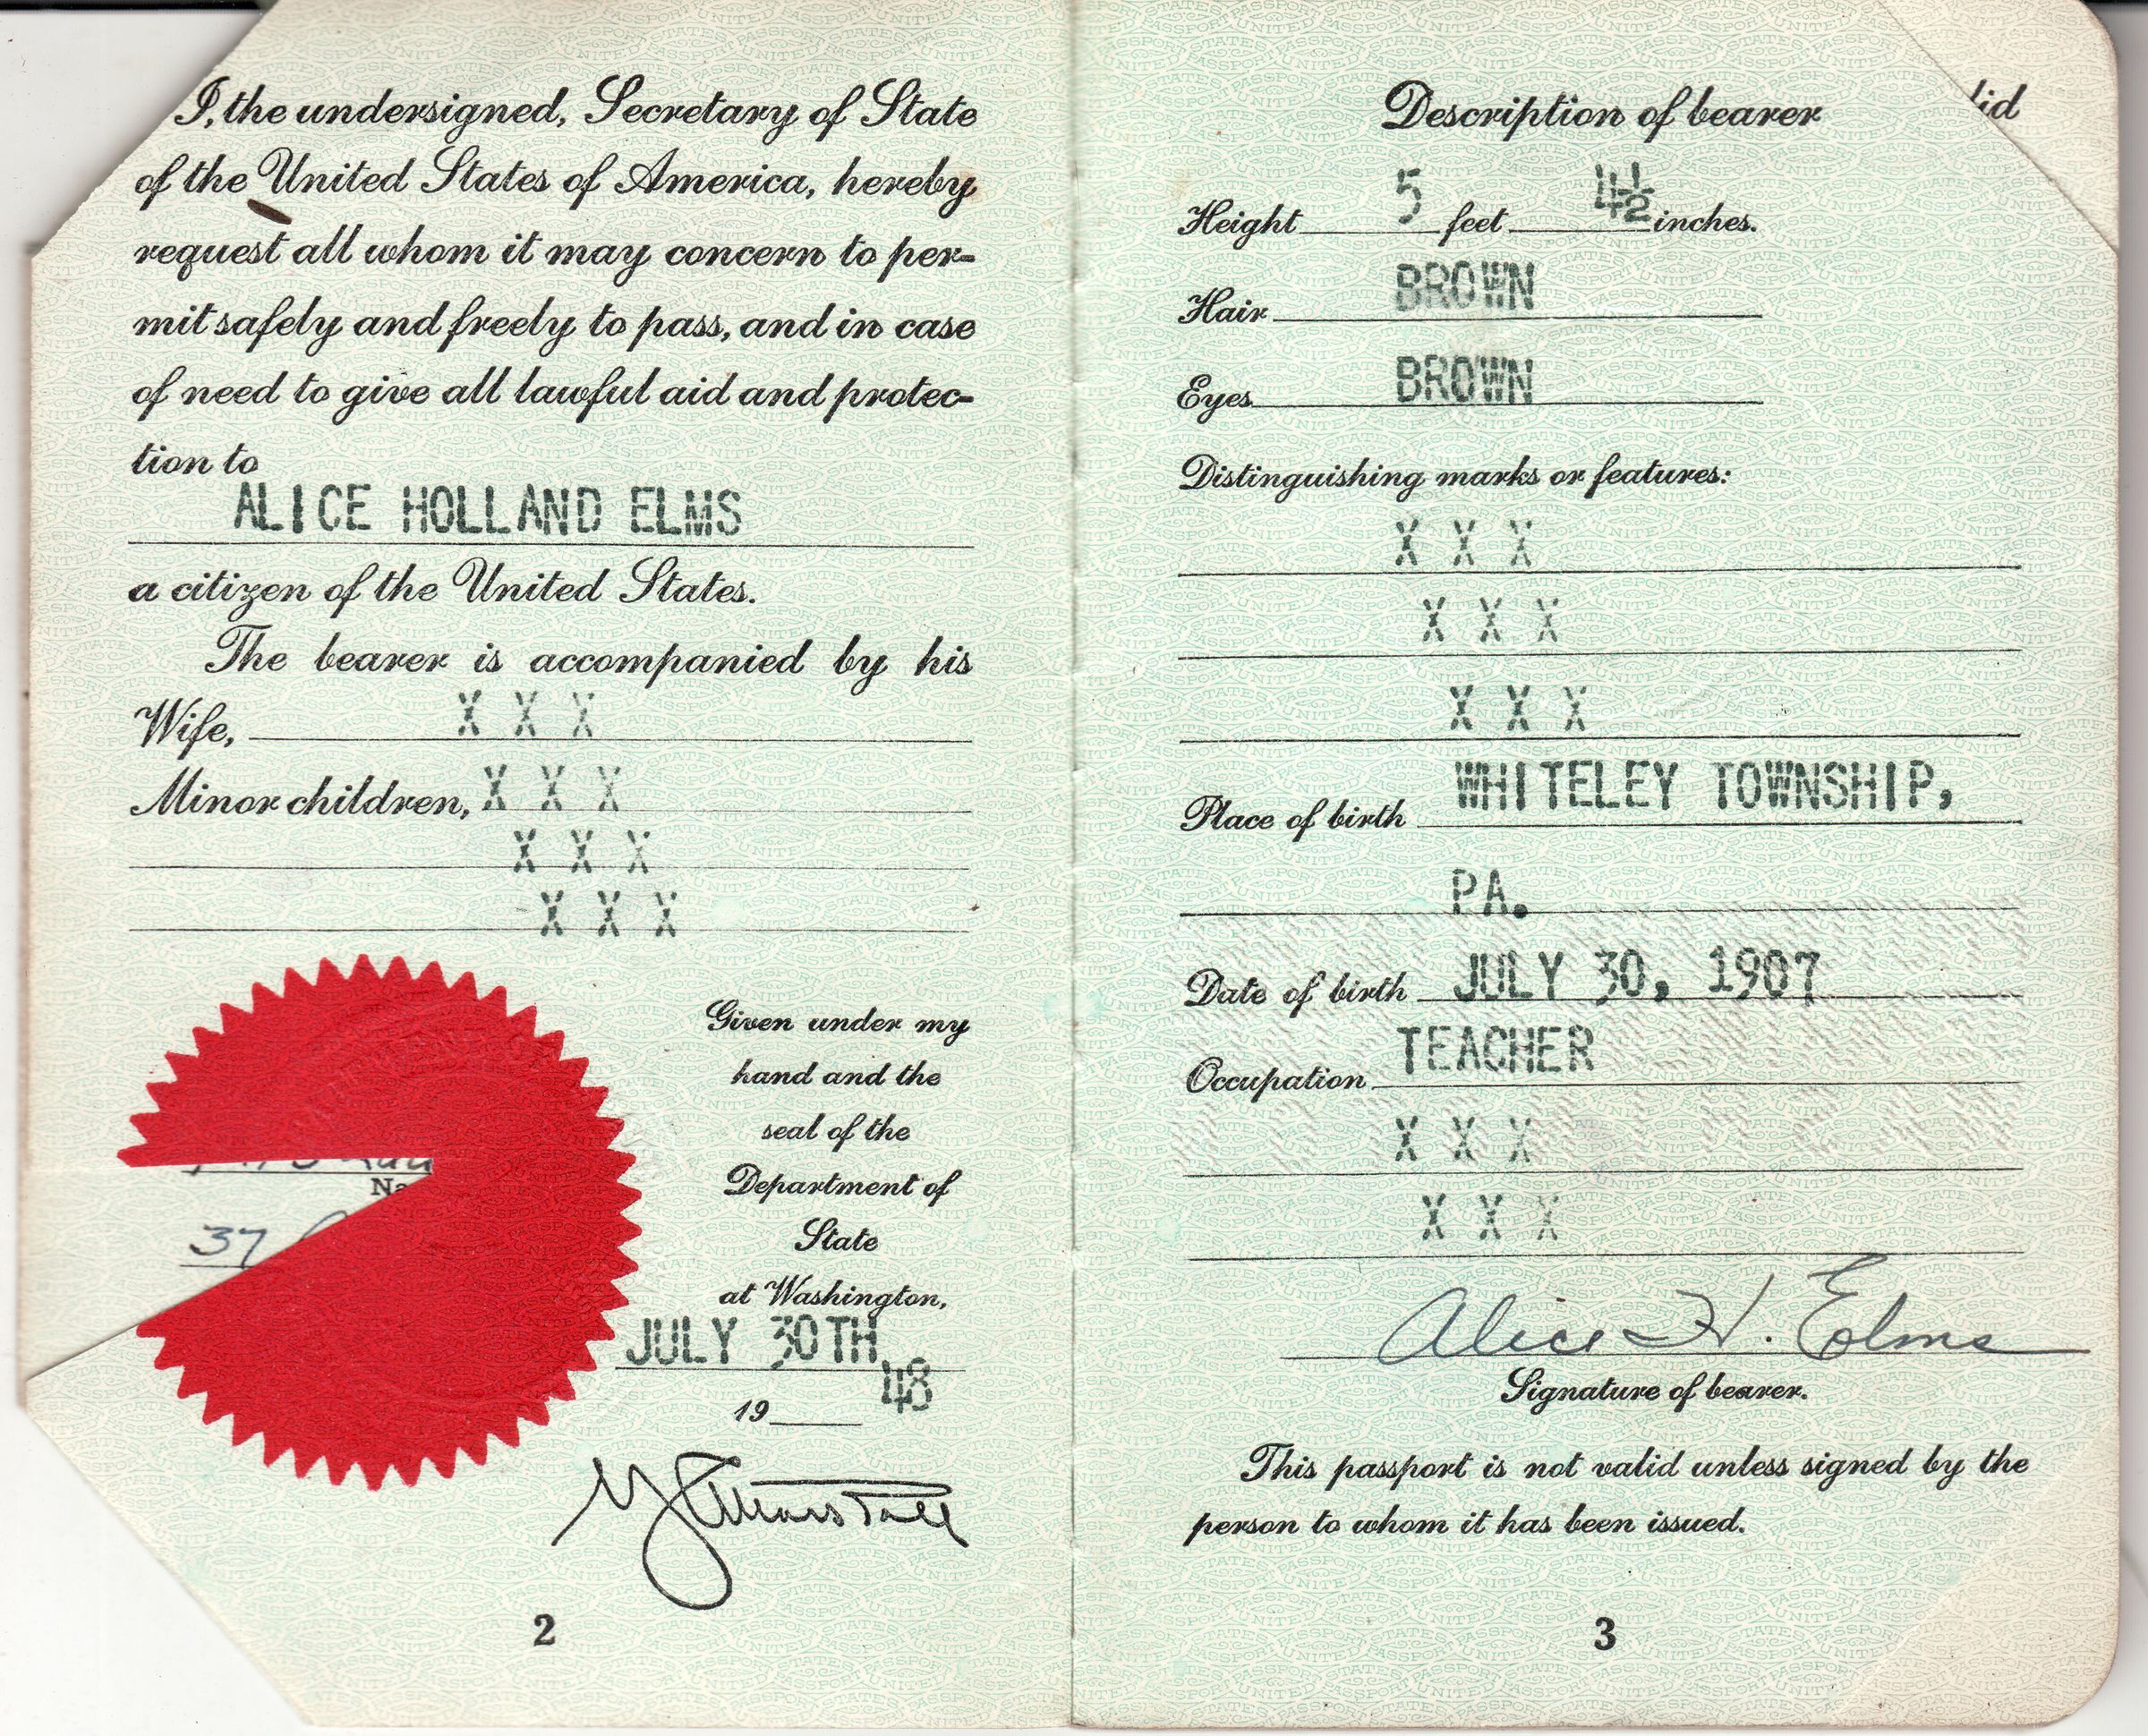 I, the undersigned, Secretary of State
of the United States of America, hereby
request all whom it may concern to per-
mit safely and freely to pass, and in case
of need to give all lawful aid and protec-
tion to
ALICE HOLLAND ELMS
a citizen of the United States.
The bearer is accompanied by his
Wife, X X X
Minor children, X X X
X X X
X X X
Given under my
hand and the
seal of the
Department of
State
at Washington,
JULY 30TH
19 48
37
G C Marshall
2
Description of bearer
Height 5 feet 4½ inches.
Hair BROWN
Eyes BROWN
Distinguishing marks or features:
X X X
X X X
X X X
Place of birth WHITELEY TOWNSHIP,
PA.
Date of birth JULY 30, 1907
Occupation TEACHER
X X X
X X X
Alice H. Elms
Signature of bearer.
This passport is not valid unless signed by the
person to whom it has been issued.
3